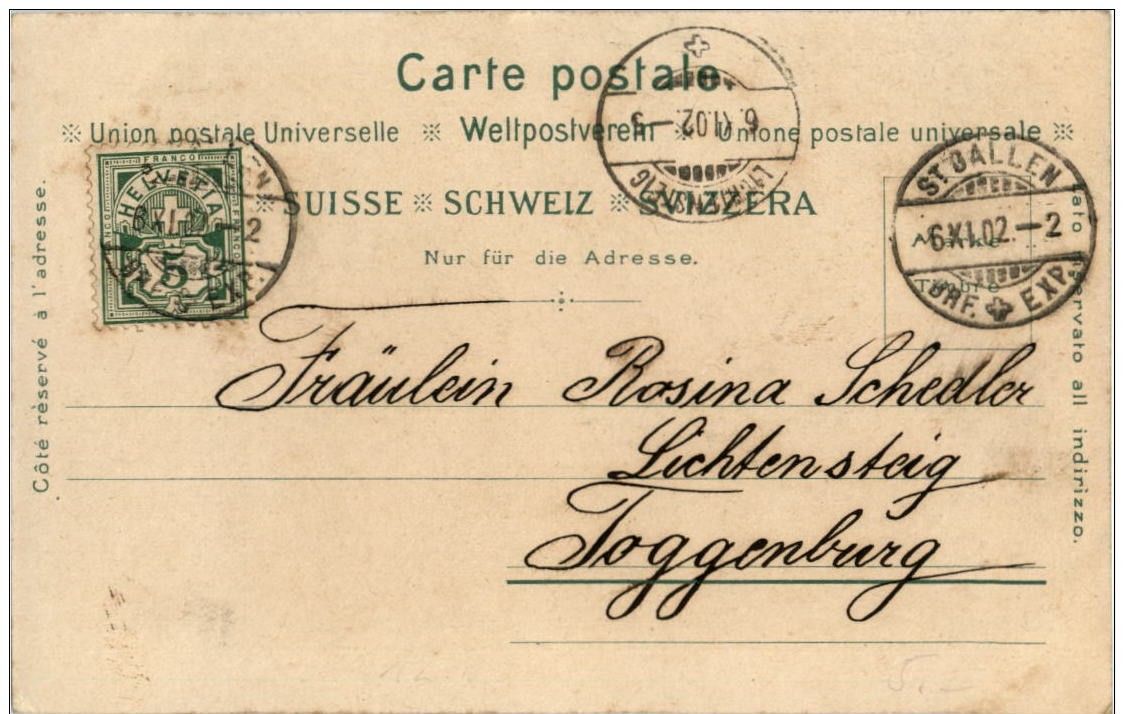 Carte postale
※ Union postale Universelle ※ Weltpostverein ※ Unione postale universale ※
※ SUISSE ※ SCHWEIZ ※ SVIZZERA
Nur für die Adresse.
Côté rèservé à l'adresse.
FRANCO
HELVETIA
5
6.XI.02.–2
EXP.
6.XI.02.–3
LICHTENSTEIG
ST. GALLEN
6.XI.02.–2
BRF. EXP.
Marke
Timbre
Lato riservato all indirizzo.
Fräulein Rosina Schedler
Lichtensteig
Toggenburg
5.–